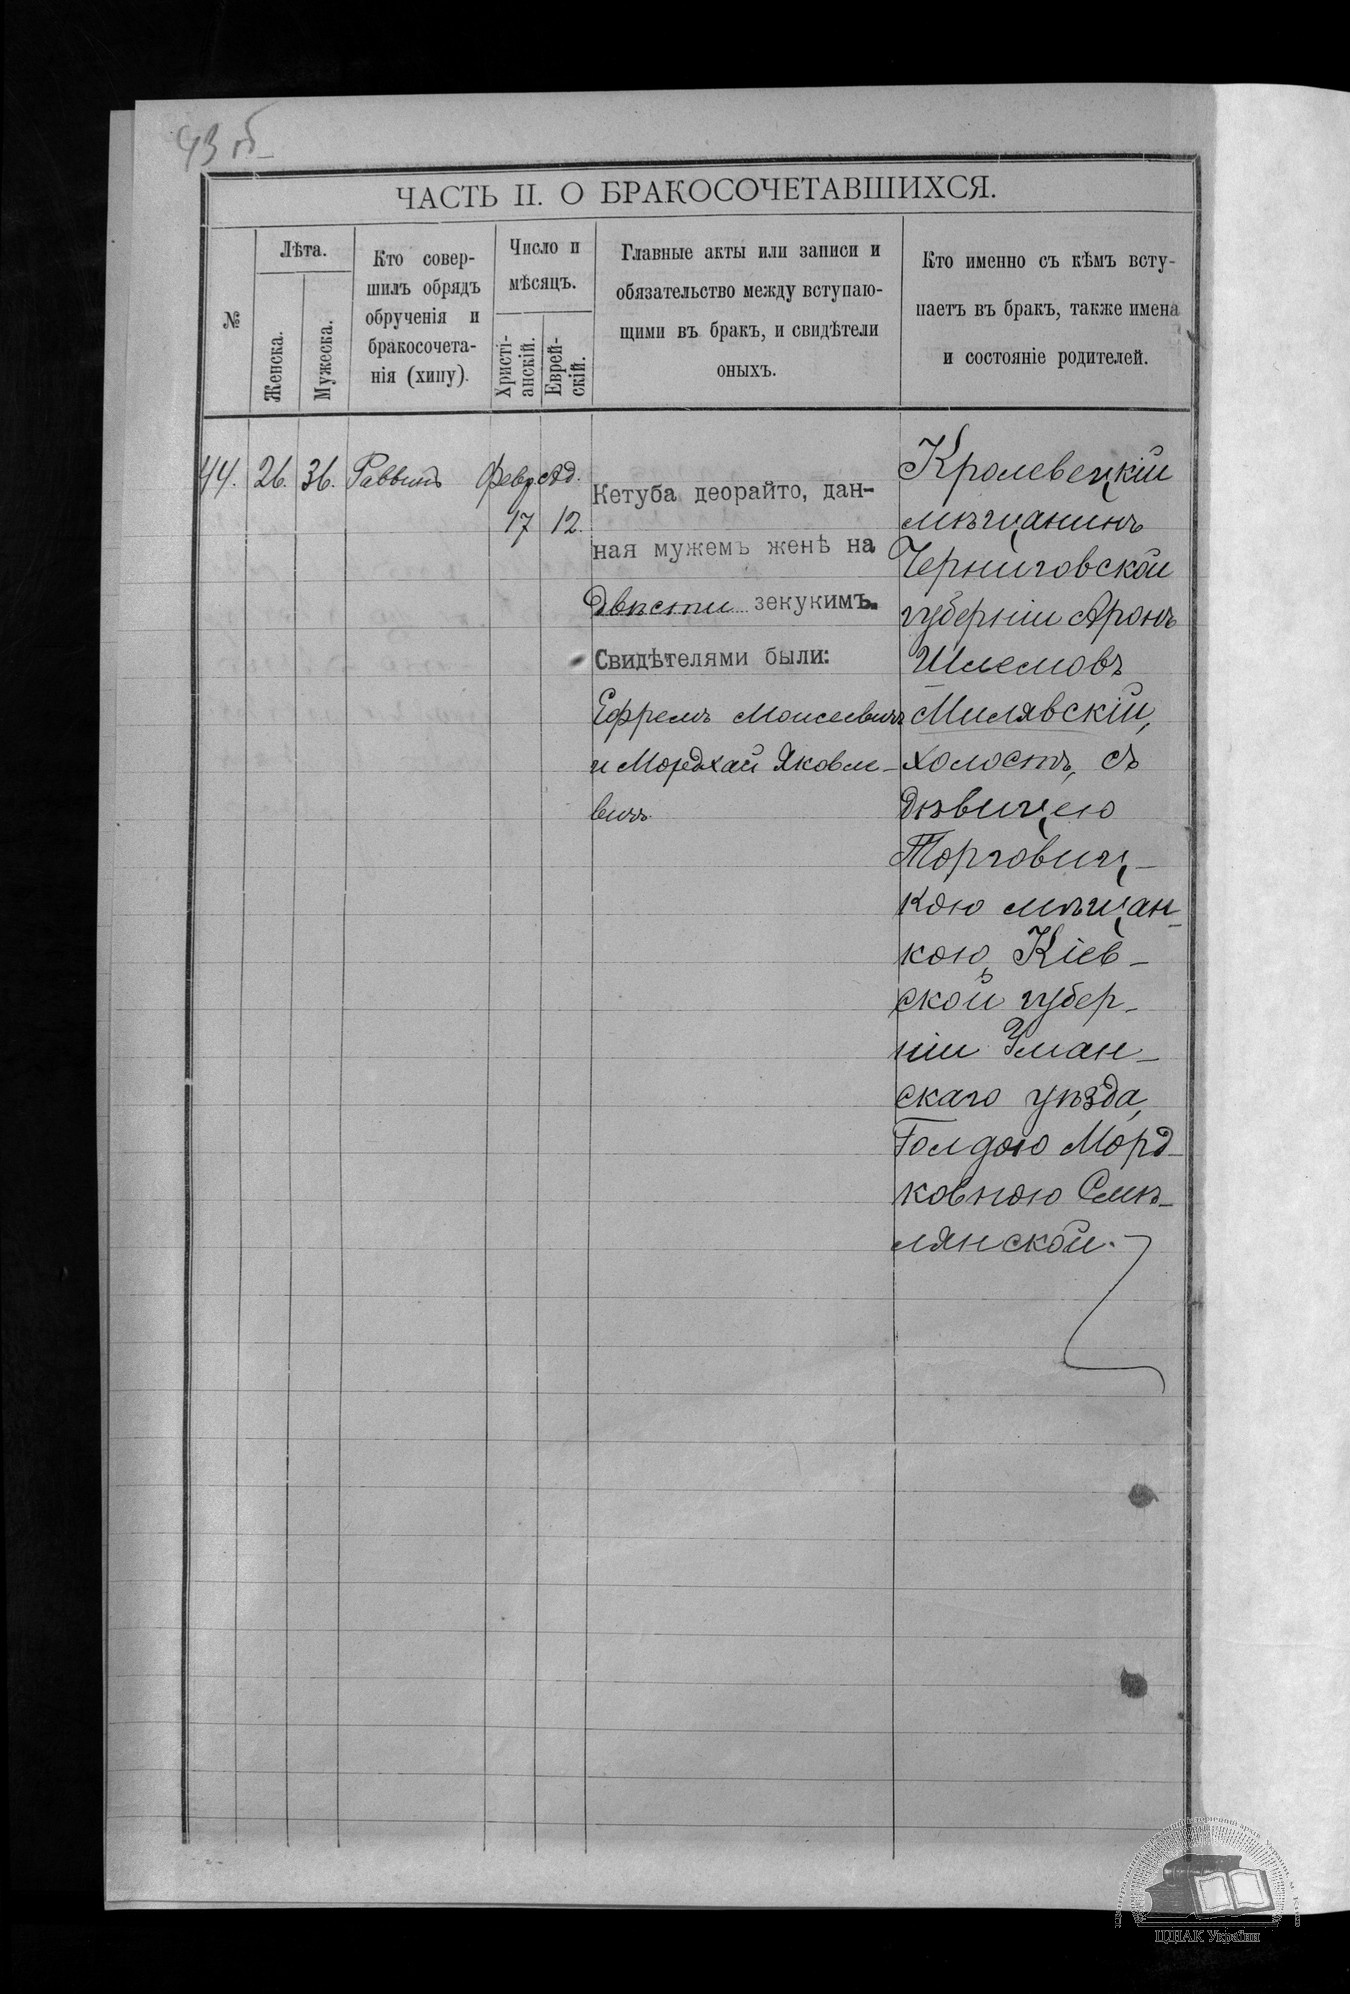 43 об
ЧАСТЬ II. О БРАКОСОЧЕТАВШИХСЯ.
№
Лѣта.
Женска.
Мужеска.
Кто совер-
шилъ обрядъ
обрученія и
бракосочета-
нія (хипу).
Число и
мѣсяцъ.
Христі-
анскій.
Еврей-
скій.
Главные акты или записи и
обязательство между вступаю-
щими въ бракъ, и свидѣтели
оныхъ.
Кто именно съ кѣмъ всту-
паетъ въ бракъ, также имена
и состояніе родителей.
44. 26. 36. Раввинъ Февр. Ад.
17 12.
Кетуба деорайто, дан-
ная мужемъ женѣ на
двѣсти зекукимъ.
Свидѣтелями были:
Ефремъ Моисеевичъ
и Мордхай Яковле-
вичъ
Кролевецкій
мѣщанинъ
Черниговской
губерніи Аронъ
Шлемовъ
Милявскій,
холостъ, съ
дѣвицею
Торговиц-
кою мѣщан-
кою, Кіев-
ской губер-
ніи Уман-
скаго уѣзда,
Голдою Морд-
ковною Смѣ-
лянской.
ЦДІАК України